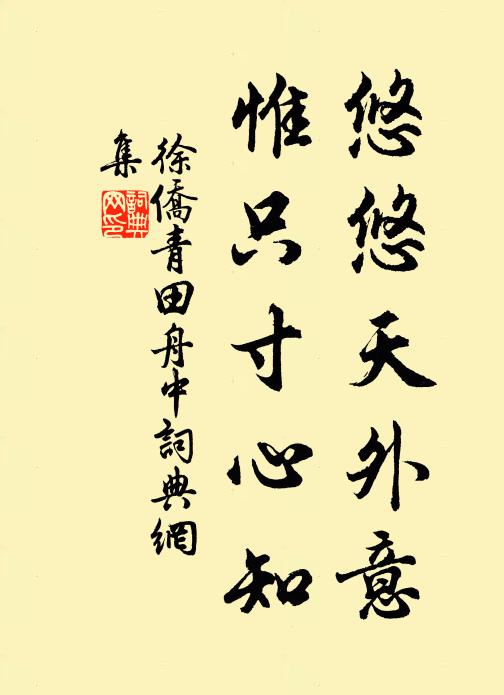 悠悠天外意
惟只寸心知
徐僑青田舟中詞典網
集
詞典網印